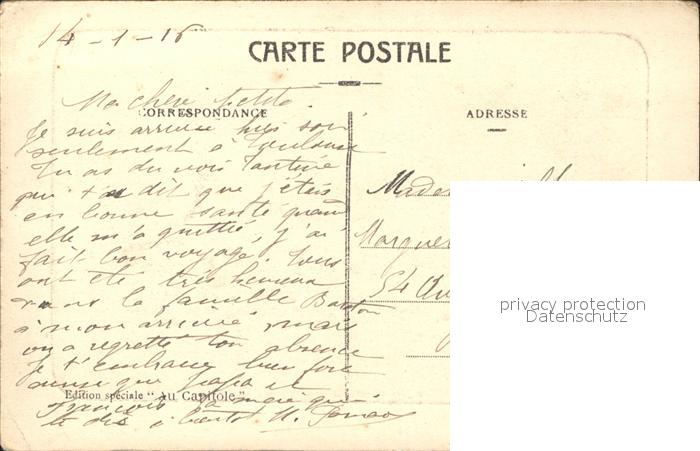 14-1-16
CARTE POSTALE
CORRESPONDANCE
ADRESSE
Ma chère petite
Je suis arrivée hier soir
seulement à Toulouse
Tu as du voir Tantine
qui t'a dit que j'étais
en bonne santé quand
elle m'a quittée, j'ai
fait bon voyage. Tous
ont été très heureux
dans la famille
à mon arrivée, mais
on a regretté ton absence
Je t'embrasse bien fort
ainsi que papa et
François ta
te dis à bientôt
Made
Marguer
54
Edition spéciale "Au Capitole"
privacy protection
Datenschutz